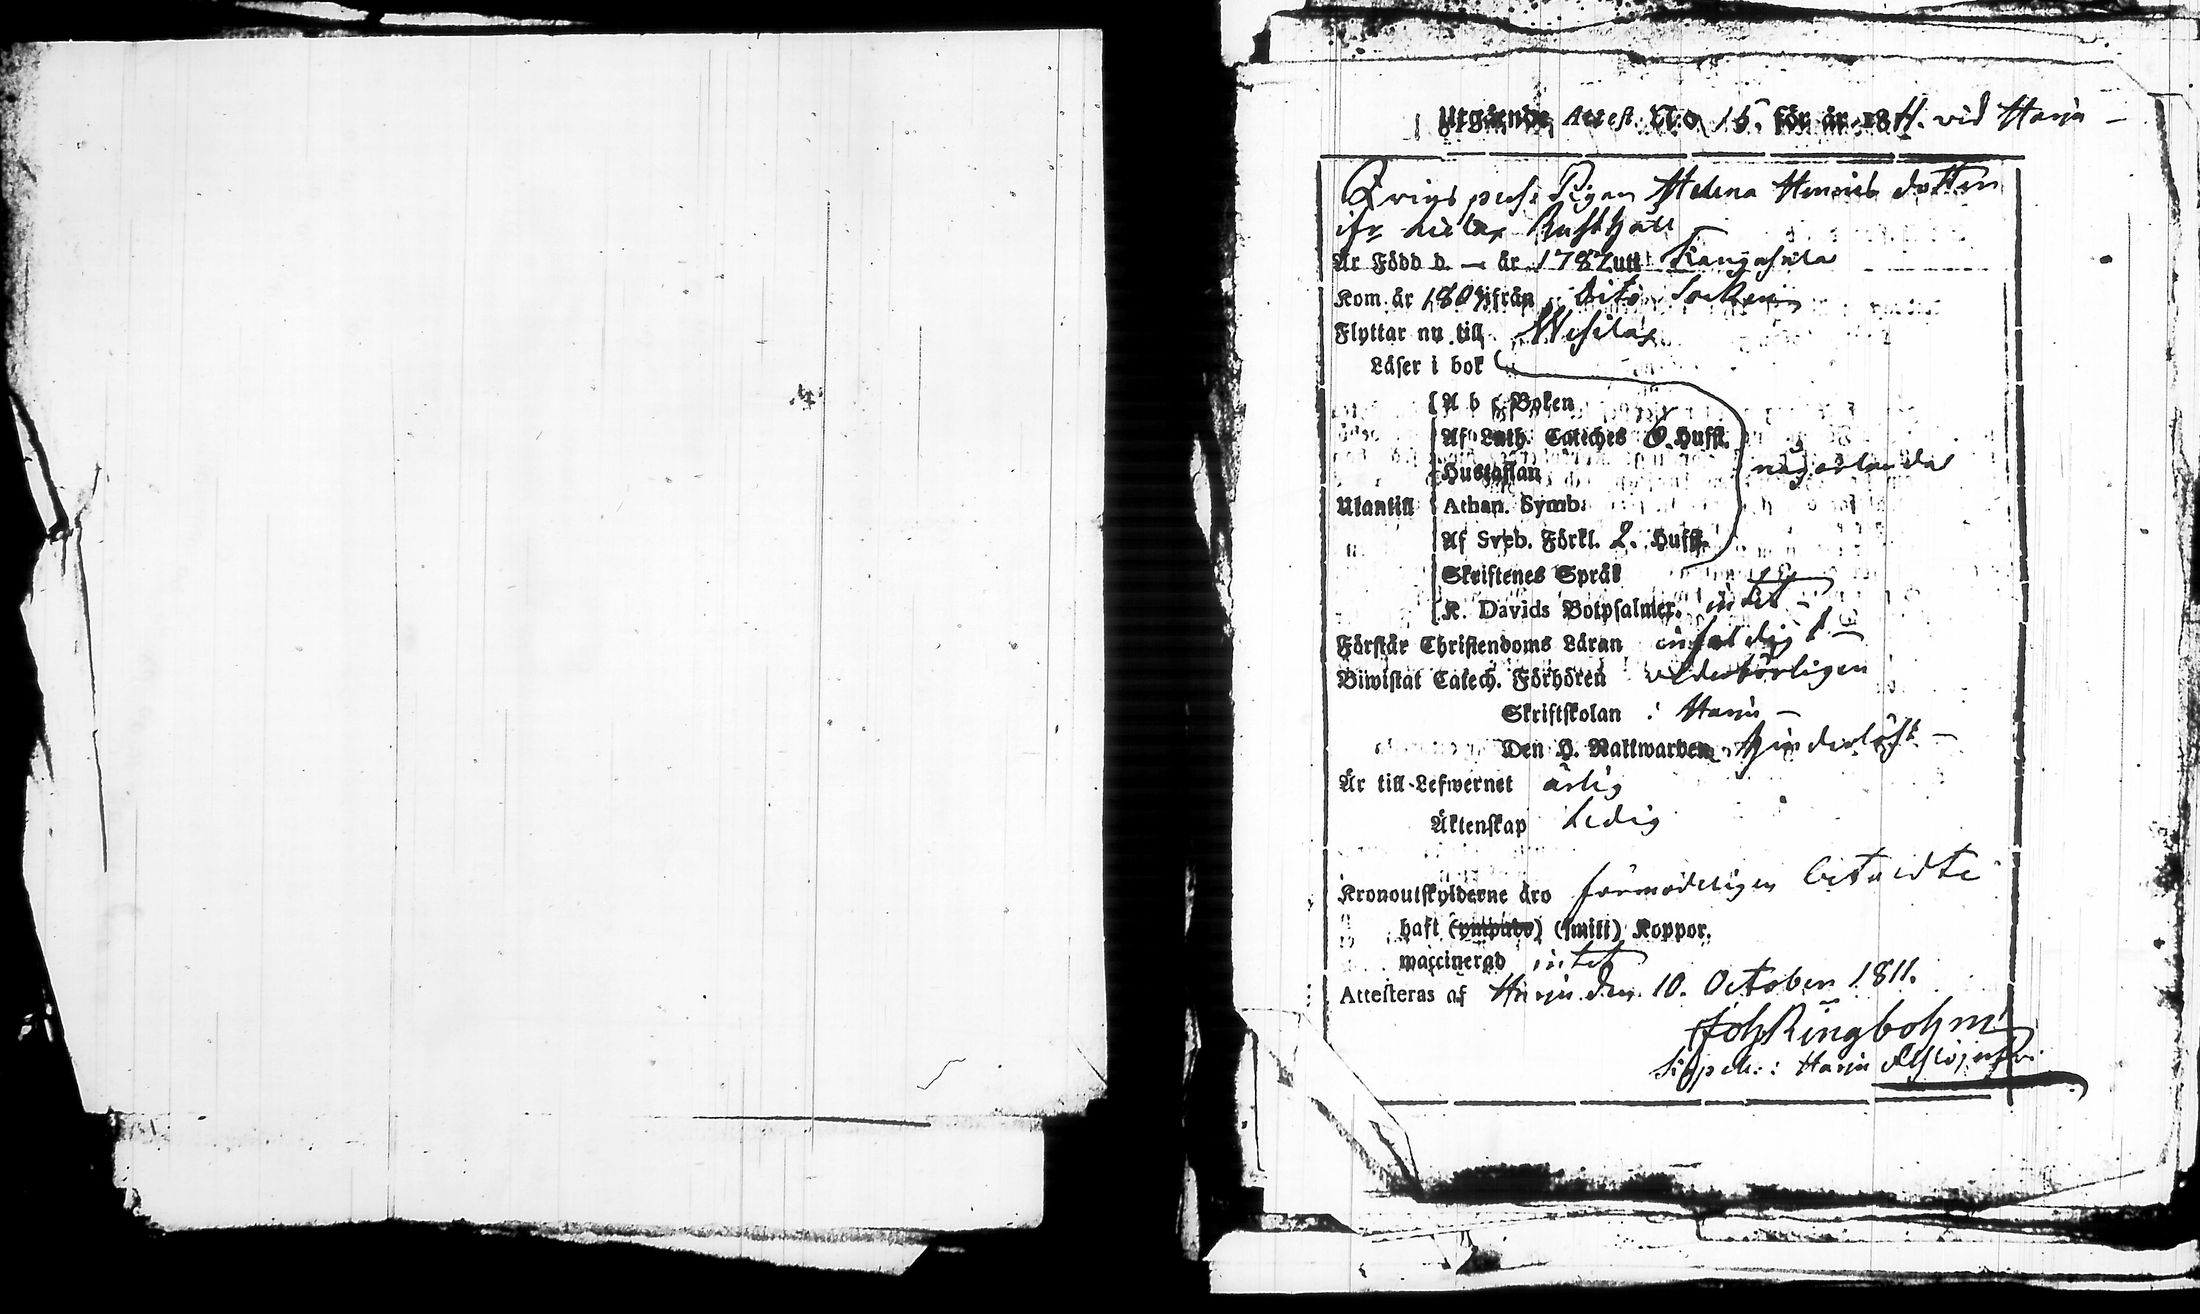 Utgående Attest N:o 15. för år 1811. vid Harju
Qvins pers: Pigan Helena Henrics dotter
ifr Rusthåll
Är Född d. — år 1782 utt Kangasala
Kom år 180 ifrån dito Socken
Flyttar nu till Wesilax
Läser i bok
A b c Boken
Af Luth. Cateches 6. Hufst.
Hustaflan någorlunda
Utantill Athan. Symb.
Af Sveb. Förkl. 2. Hufst.
Skriftenes Språk
K. Davids Botpsalmer. intet
Förstår Christendoms Läran enfaldigt
Biwistat Catech. Förhören vederbörligen
Skriftskolan i Harju
Den H. Nattwarden Hinderlöst
Är till Lefwernet ärlig
Äktenskap Ledig
Kronoutskylderne äro förmodeligen betaldte
haft (ympade) (smitt) Koppor.
waccinerad intet
Attesteras af Harju den 10. October 1811.
Joh Ringbohm
Harju